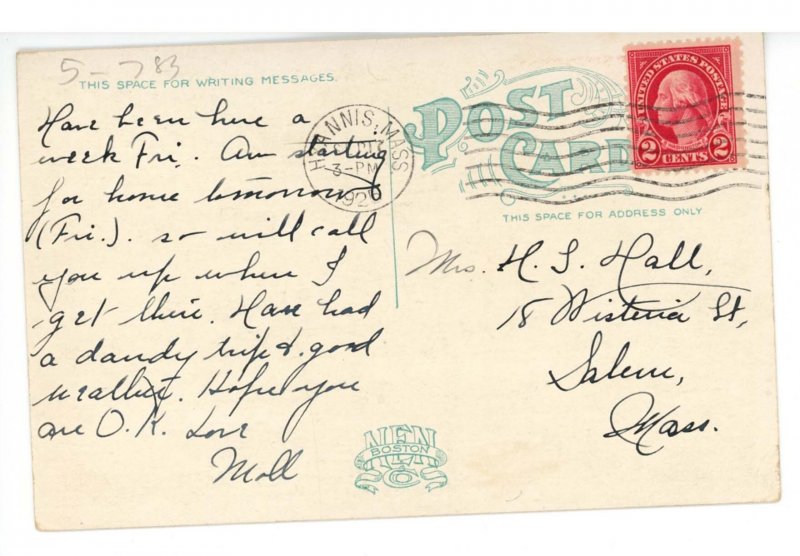 5-783
THIS SPACE FOR WRITING MESSAGES.
POST
CARD
THIS SPACE FOR ADDRESS ONLY
UNITED STATES POSTAGE
2 CENTS 2
HYANNIS, MASS
3-PM
Have been here a
week Fri. Am starting
for home tomorrow
(Fri.). so will call
you up when I
get there. Have had
a dandy trip & good
weather. Hope you
are O.K. Love
Moll
Mrs. H. S. Hall,
18 Wisteria St,
Salem,
Mass.
NEN
BOSTON